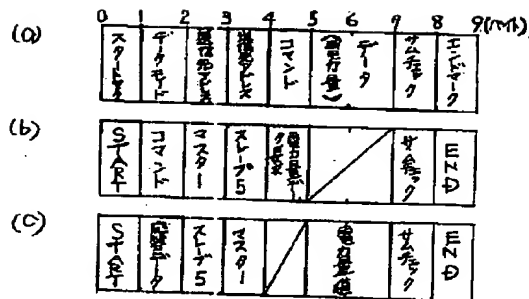 0 1 2 3 4 5 6 7 8 9(バイト)
(a) スタートマーク データモード 送信先アドレス 送信元アドレス コマンド データ(電力量) サムチェック エンドマーク
(b) START コマンド マスター スレーブ5 電力量データ要求 サムチェック END
(c) START スレーブ5 マスター 電力量値 サムチェック END